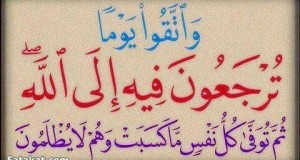 وَاتَّقُوا۟ يَوْمًا
تُرْجَعُونَ فِيهِ إِلَى ٱللَّهِ ۖ
ثُمَّ تُوَفَّىٰ كُلُّ نَفْسٍ مَّا كَسَبَتْ وَهُمْ لَا يُظْلَمُونَ
Fatakat.com